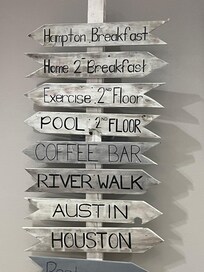 Hampton Breakfast
Home 2 Breakfast
Exercise 2nd Floor
POOL 2nd FLOOR
COFFEE BAR
RIVER WALK
AUSTIN
HOUSTON